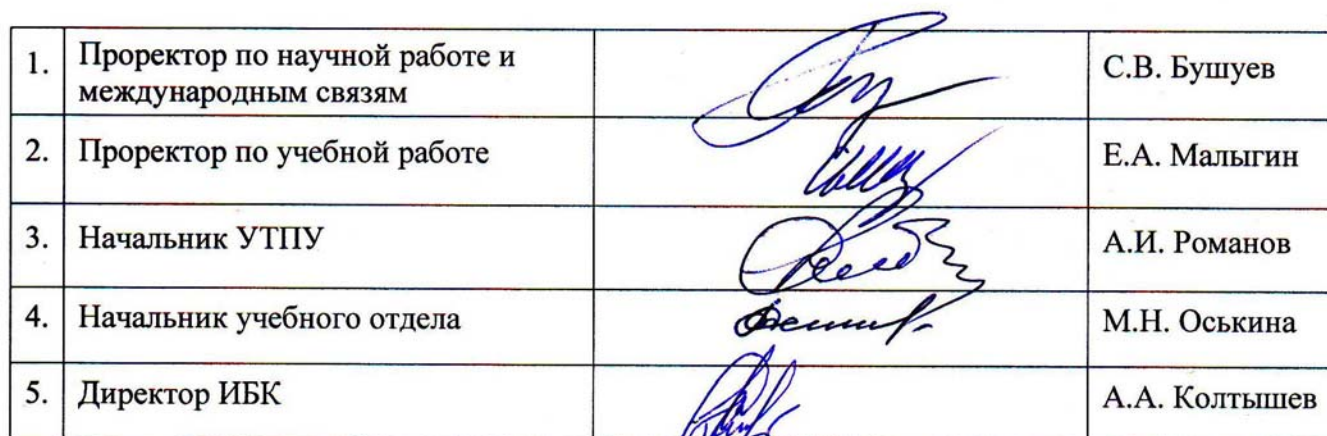 1. Проректор по научной работе и
международным связям
С.В. Бушуев
2. Проректор по учебной работе
Е.А. Малыгин
3. Начальник УТПУ
А.И. Романов
4. Начальник учебного отдела
М.Н. Оськина
5. Директор ИБК
А.А. Колтышев